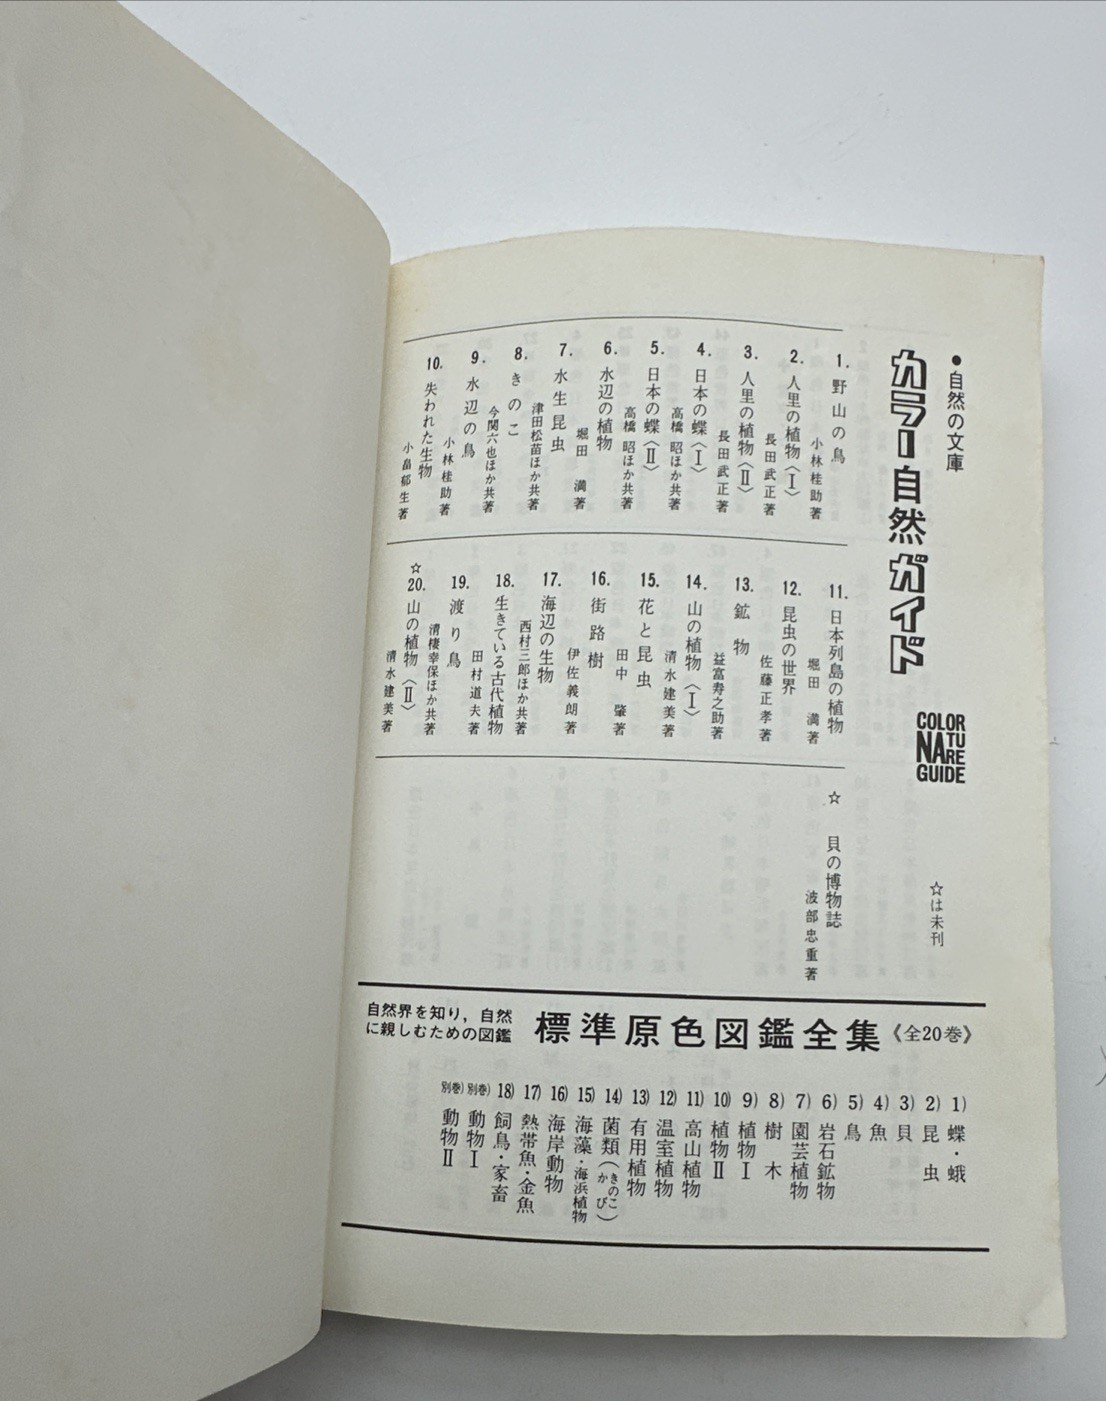 ●自然の文庫
カラー自然ガイド
COLOR
NATURE
GUIDE
☆は未刊
1. 野山の鳥
小林桂助著
2. 人里の植物〈Ⅰ〉
長田武正著
3. 人里の植物〈Ⅱ〉
長田武正著
4. 日本の蝶〈Ⅰ〉
高橋 昭ほか共著
5. 日本の蝶〈Ⅱ〉
高橋 昭ほか共著
6. 水辺の植物
堀田 満著
7. 水生昆虫
津田松苗ほか共著
8. きのこ
今関六也ほか共著
9. 水辺の鳥
小林桂助著
10. 失われた生物
小畠郁生著
11. 日本列島の植物
堀田 満著
12. 昆虫の世界
佐藤正孝著
13. 鉱物
益富寿之助著
14. 山の植物〈Ⅰ〉
清水建美著
15. 花と昆虫
田中 肇著
16. 街路樹
伊佐義朗著
17. 海辺の生物
西村三郎ほか共著
18. 生きている古代植物
田村道夫著
19. 渡り鳥
清棲幸保ほか共著
☆20. 山の植物〈Ⅱ〉
清水建美著
☆ 貝の博物誌
波部忠重著
自然界を知り，自然
に親しむための図鑑
標準原色図鑑全集《全20巻》
1) 蝶・蛾
2) 昆虫
3) 貝
4) 魚
5) 鳥
6) 岩石鉱物
7) 園芸植物
8) 樹木
9) 植物Ⅰ
10) 植物Ⅱ
11) 高山植物
12) 温室植物
13) 有用植物
14) 菌類（きのこ かび）
15) 海藻・海浜植物
16) 海岸動物
17) 熱帯魚・金魚
18) 飼鳥・家畜
別巻) 動物Ⅰ
別巻) 動物Ⅱ